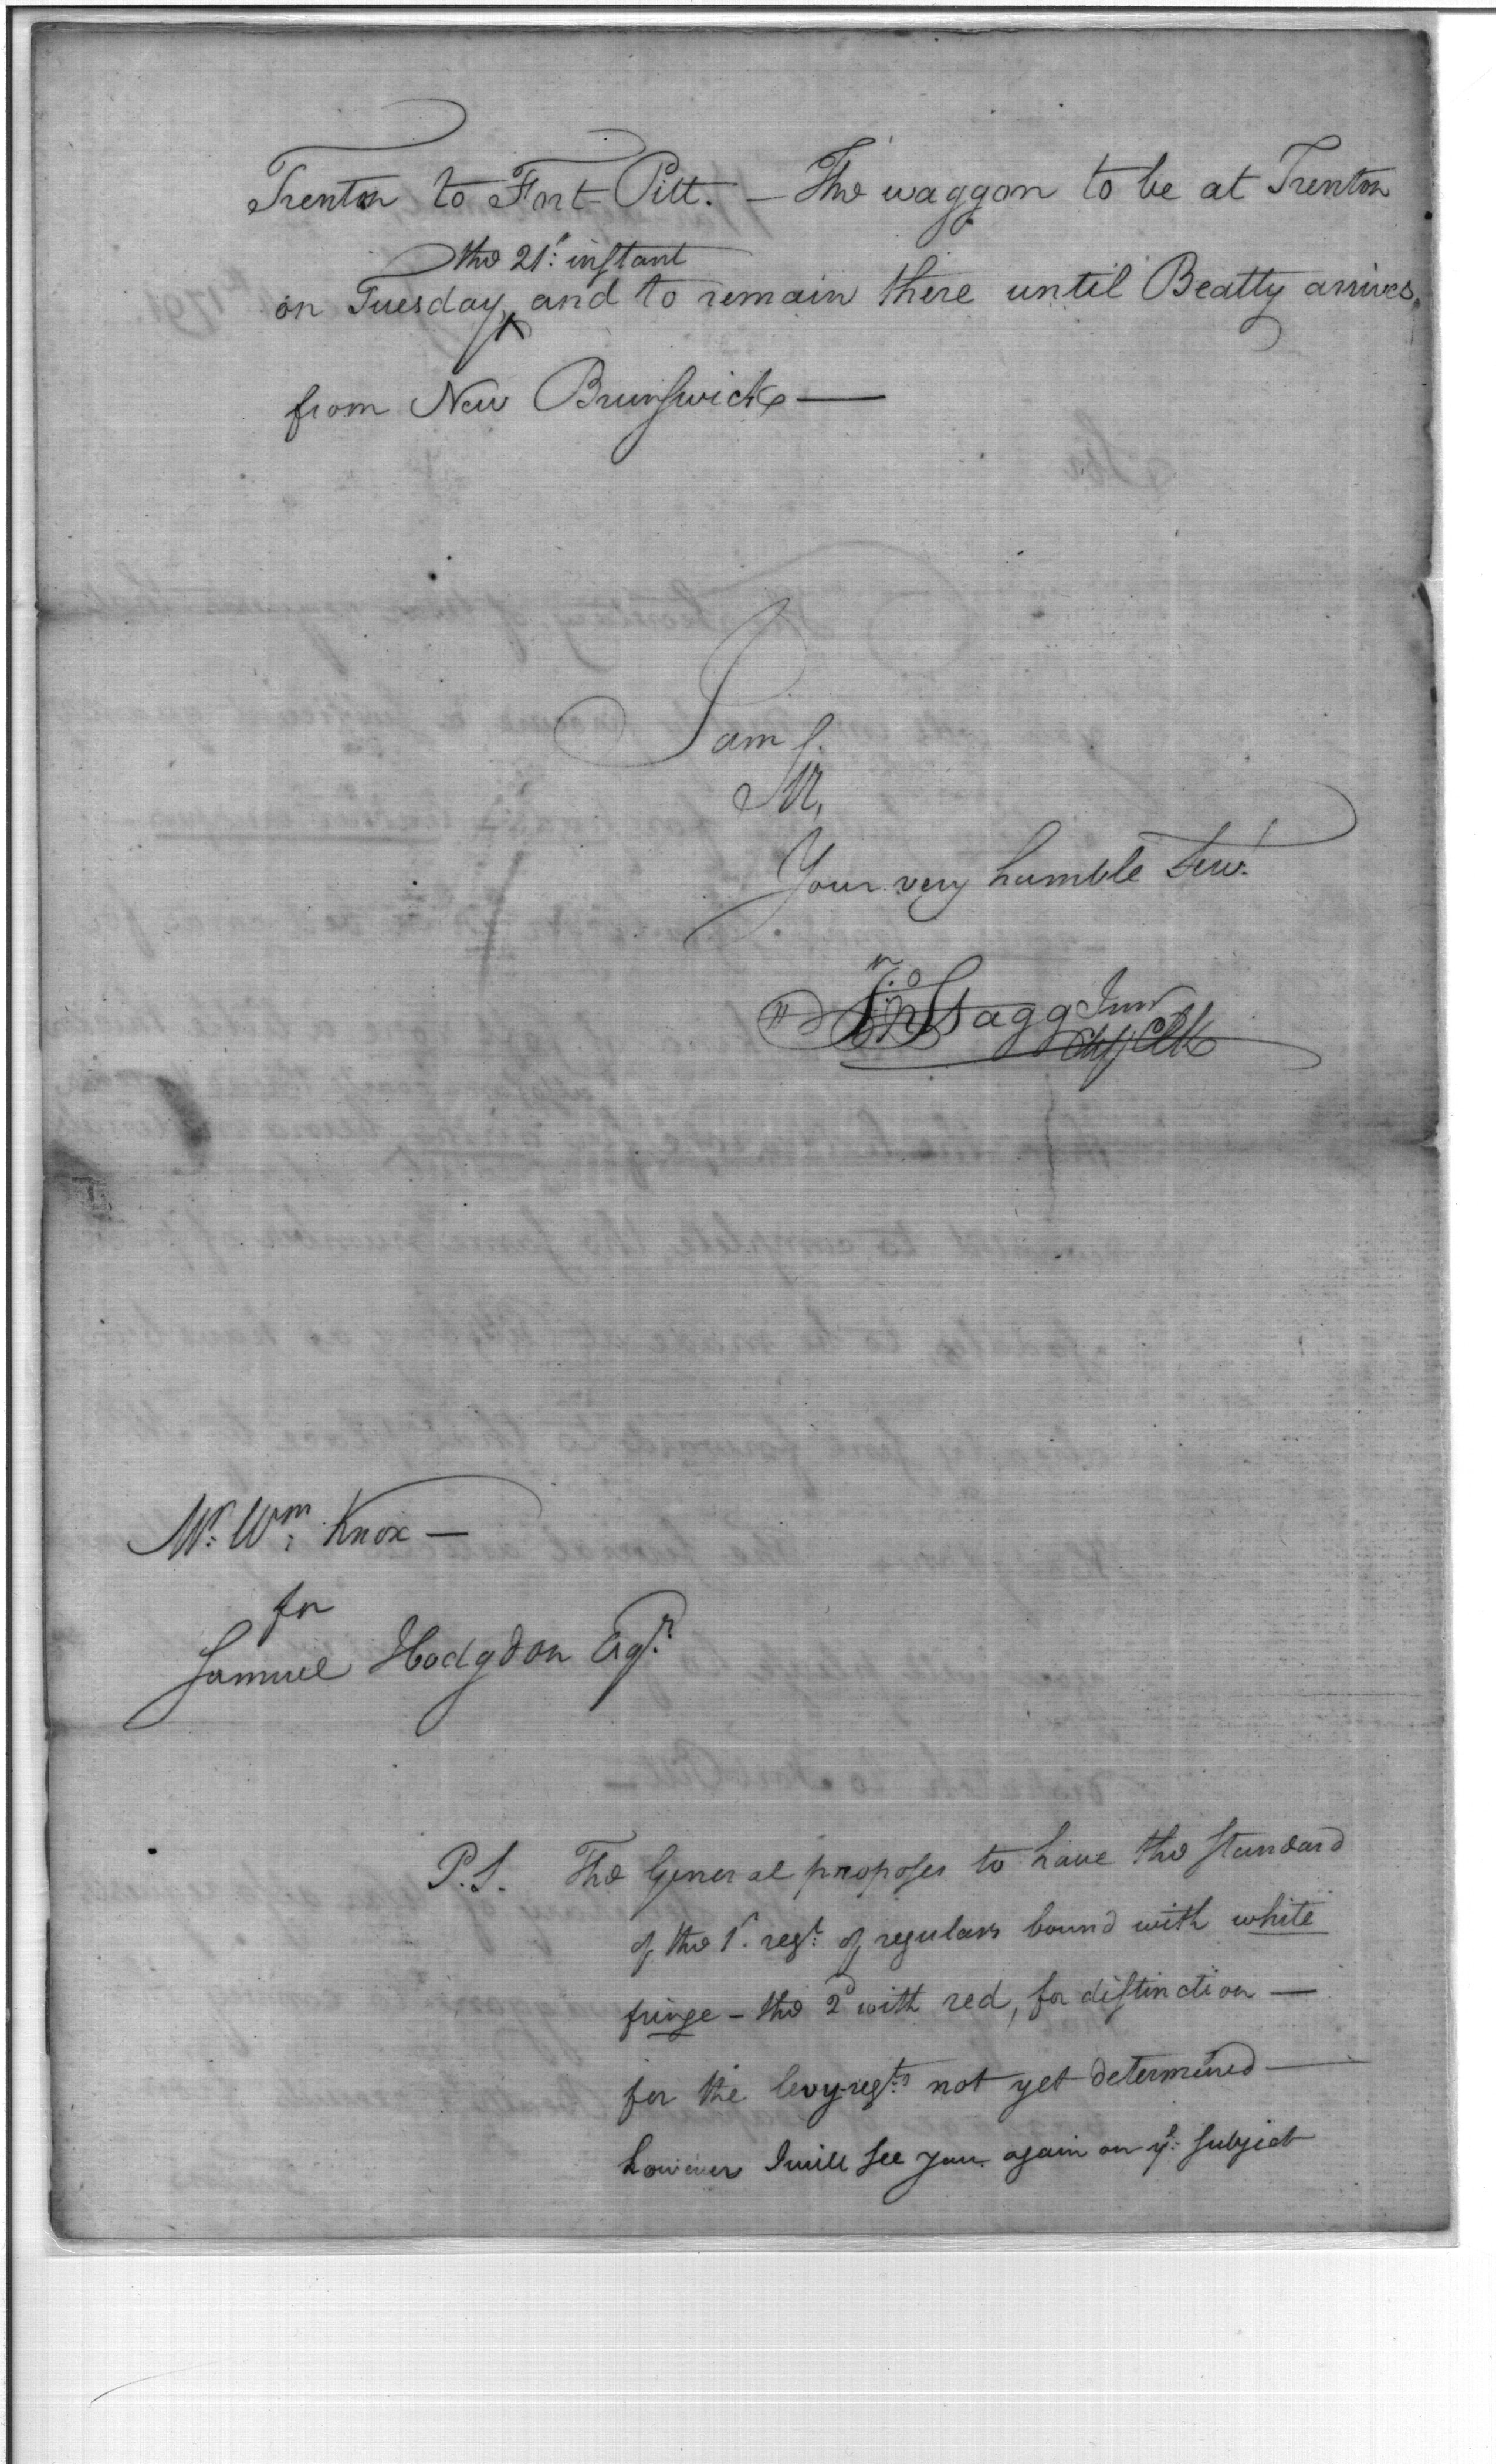 Trenton to Fort-Pitt. — The waggon to be at Trenton
the 21st: instant
on Tuesday, ^ and to remain there until Beatty arrives,
from New Brunswick —
I am S.
Sir,
Your very humble Serv.t
Jno Stagg Junr
Chf Clk
Mr: Wm: Knox —
for
Samuel Hodgdon Esqr.
P.S. The General proposes to have the standard
of the 1st. regt: of regulars bound with white
fringe – the 2d with red, for distinction —
for the levy-regts: not yet determined —
however I will see you again on ye: subject